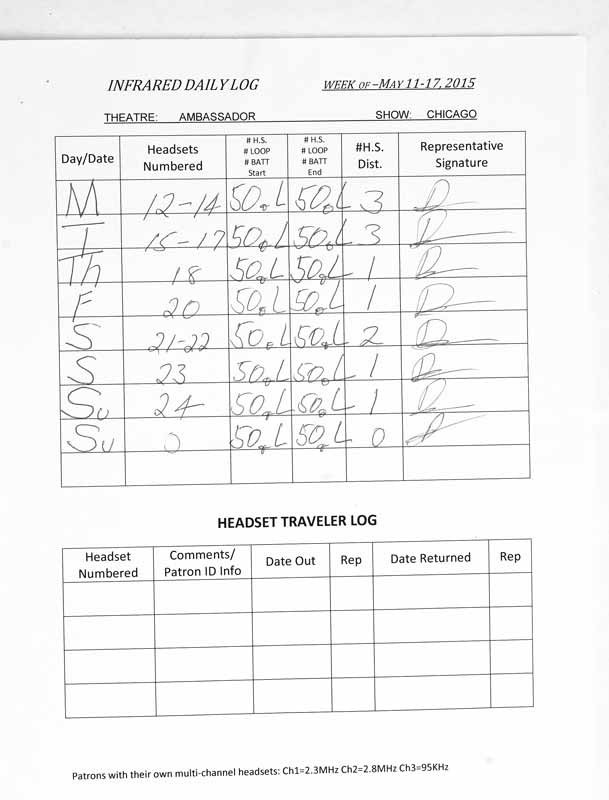 INFRARED DAILY LOG WEEK OF –MAY 11-17, 2015
THEATRE: AMBASSADOR SHOW: CHICAGO
Day/Date Headsets Numbered # H.S. # LOOP # BATT Start # H.S. # LOOP # BATT End #H.S. Dist. Representative Signature
M 12-14 50 L 50 L 3
T 15-17 50 L 50 L 3
Th 18 50 L 50 L 1
F 20 50 L 50 L 1
S 21-22 50 L 50 L 2
S 23 50 L 50 L 1
Su 24 50 L 50 L 1
Su 0 50 L 50 L 0
HEADSET TRAVELER LOG
Headset Numbered Comments/ Patron ID Info Date Out Rep Date Returned Rep
Patrons with their own multi-channel headsets: Ch1=2.3MHz Ch2=2.8MHz Ch3=95KHz